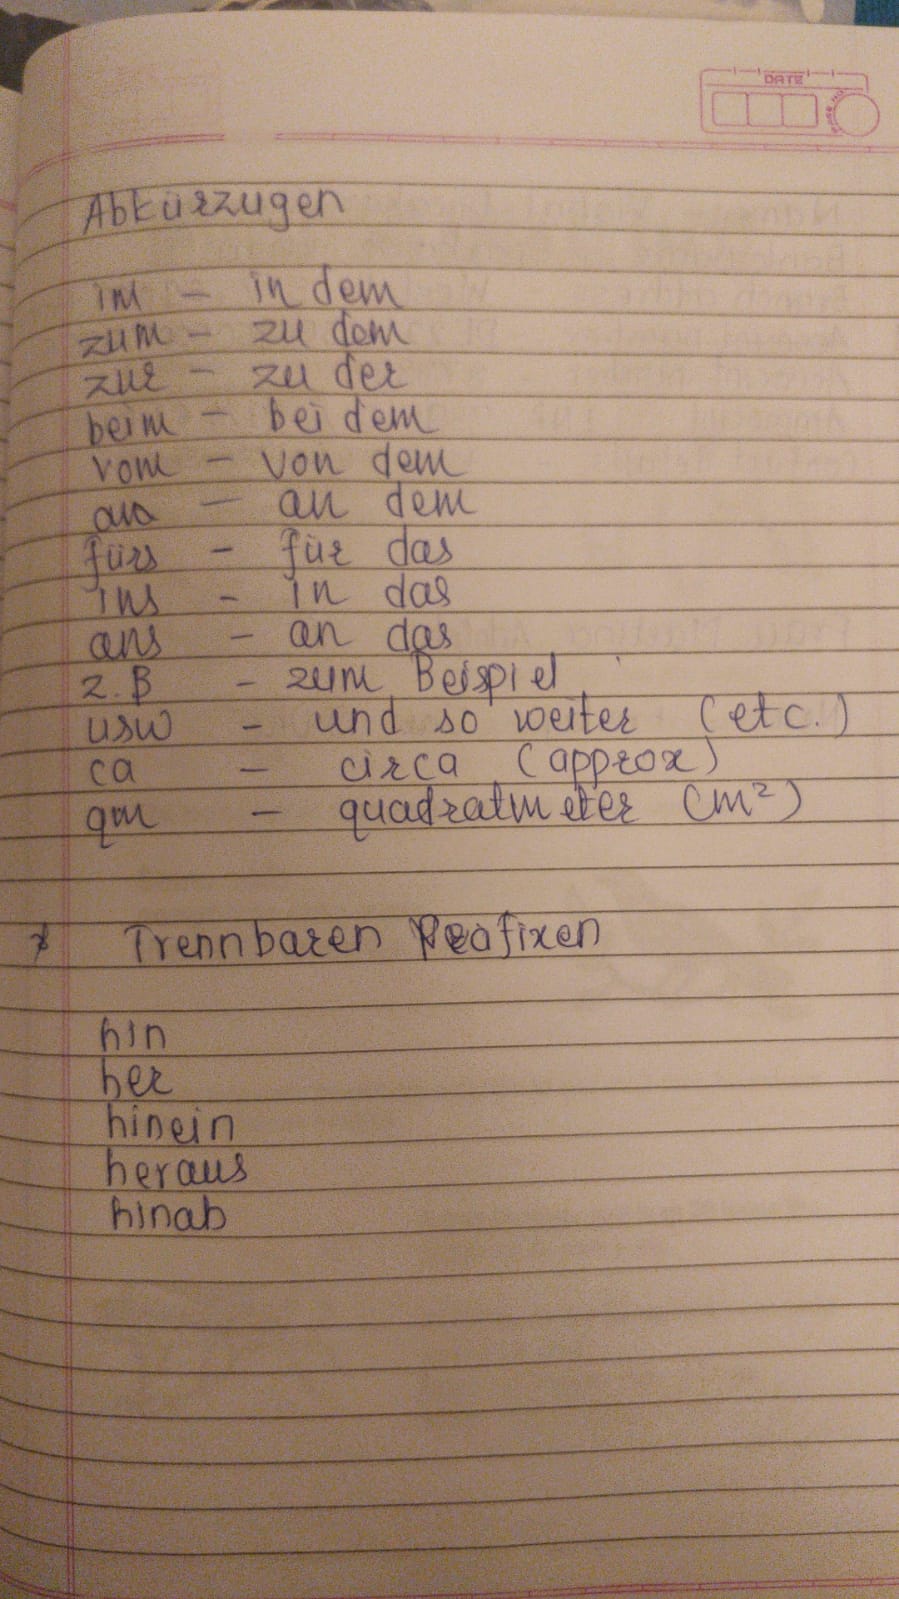 DATE
Abkürzugen
im - in dem
zum - zu dem
zur - zu der
beim - bei dem
vom - von dem
- an dem
fürs - für das
ins - in das
ans - an das
z.B - zum Beispiel
usw - und so weiter (etc.)
ca - circa (approx)
qm - quadratmeter (m²)
Trennbaren Preafixen
hin
her
hinein
heraus
hinab